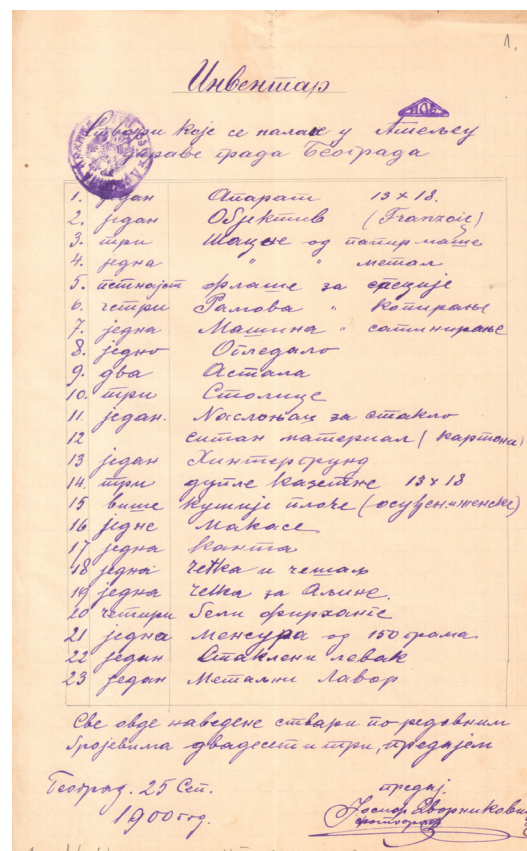 1.
Инвентар
Ствари које се налазе у Атељеу
Управе града Београда
1. један Апарат 13 x 18.
2. један Објектив (Franzois)
3. три Шацне од папир маше
4. једна " " метал
5. петнајст флаше за специје
6. четри Рамова " копирање
7. једна Машина " сатинирање
8. једно Огледало
9. два Астала
10. три Столице
11. један. Наслоњач за стакло
12 ситан материал (картони)
13 један Хинтергрунд
14. три дупле казетне 13 x 18
15 више кутије плоче (осуђен. и женске)
16 једне Маказе
17 једна Канта
18 једна четка и чешаљ
19 једна четка за Аљине.
20 четири бели фирханге
21 једна Мензура од 150 грама
22 један Стаклени левак
23 један Метални Лавор
Све овде наведене ствари по редовним
бројевима двадесет и три, предајем
Београд. 25 Сеп. предај.
1900 год. Јосиф Дворниковић
фотограф